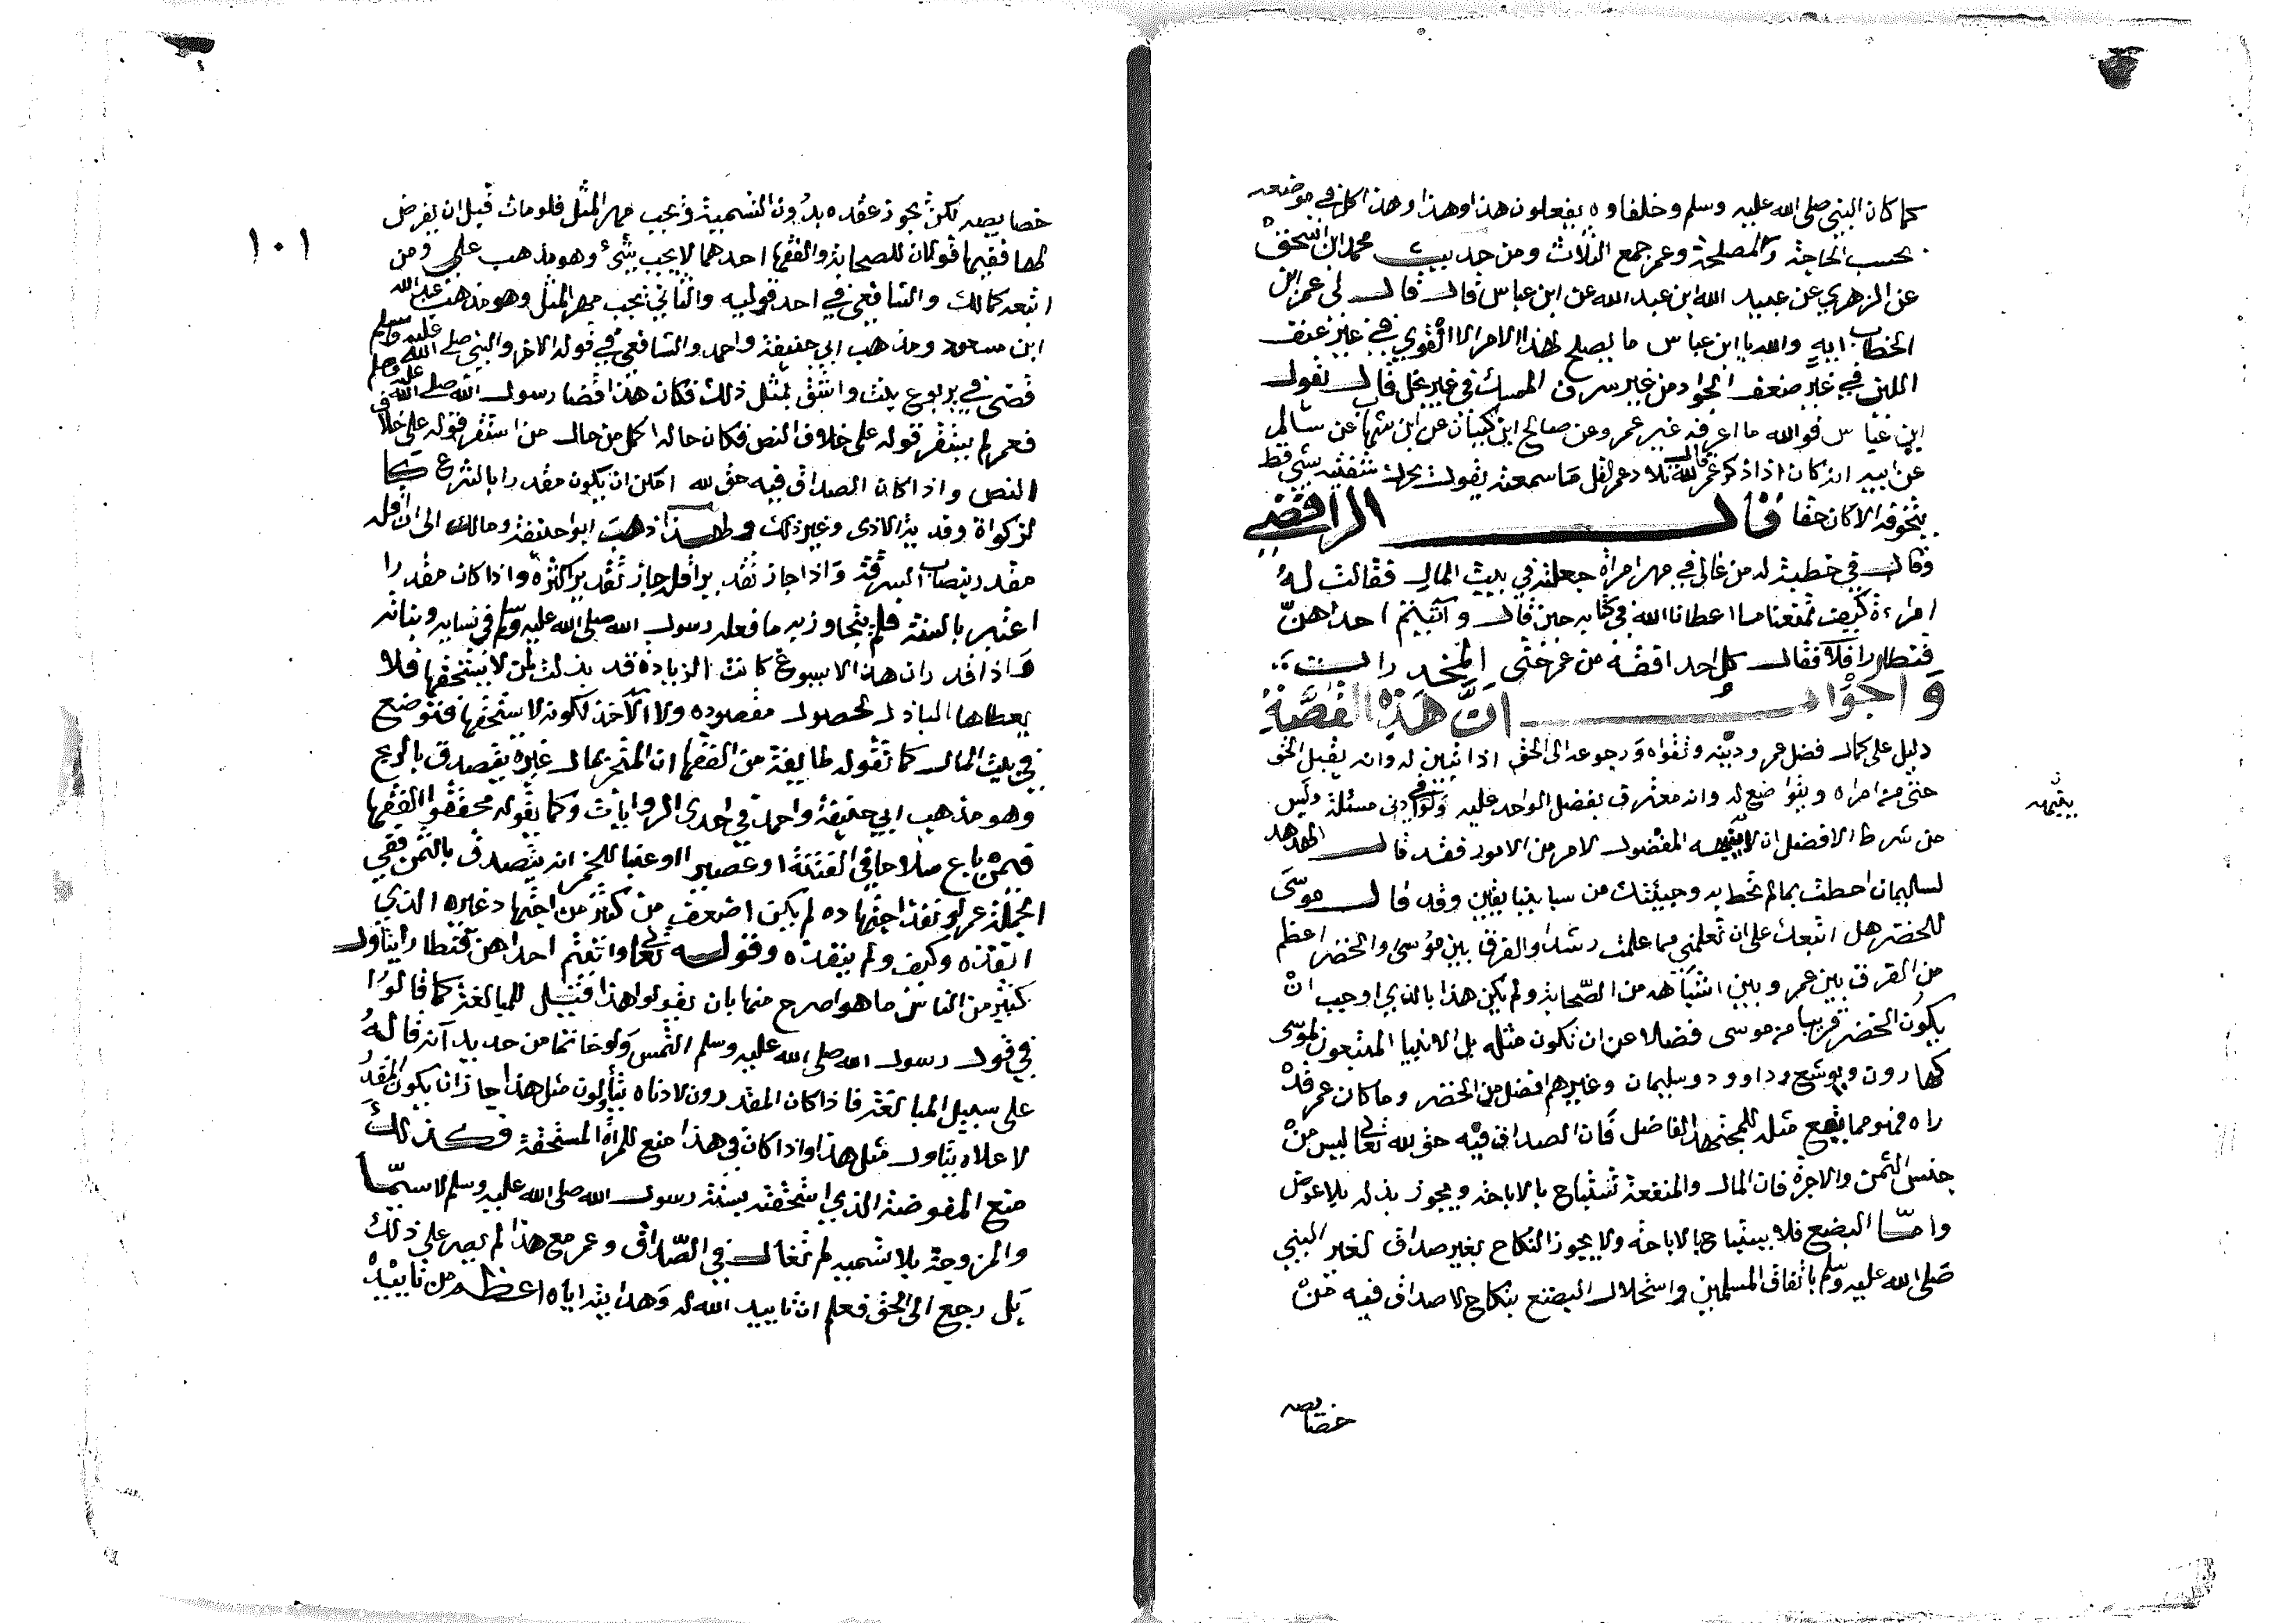 كما كان النبي صلى الله عليه وسلم وخلفاوه يفعلون هذا وهذا وهذا كل في موضعه
بحسب الحاجة والمصلحة وعمر جمع الثلاث ومن حديث محمد ابن اسحق
عن الزهري عن عبيد الله ابن عبد الله عن ابن عباس قال قال لي عمر ابن
الخطاب ايهٍ والله يا ابن عباس ما يصلح لهذا الامر الا القوي في غير عنف
اللين في غير ضعف الجواد من غير سرف الممسك في غير بخل قال يقول
ابن عباس فوالله ما اعرفه غير عمر وعن صالح ابن كيسان عن ابن شهاب عن سالم
عن ابيه انه كان اذا ذكر عمر قال لله تلاد عمر لقل ما سمعته يقول يحرك شفتيه بشي قط
يتخوفه الا كان حقا قال الرافضي
وقال في خطبة له من غالى في مهر امراة جعلته في بيت المال فقالت له
امراءة كيف تمنعنا ما اعطانا الله في كتابه حين قال وآتيتم احداهنّ
قنطارا فلا فقال كل احد افقه من عمر حتى المخدرات
والجواب انّ هذه القصّة
دليل على كمال فضل عمر ودينه وتقواه ورجوعه الى الحق اذا تبين له وانه يقبل الحق
حتى من امراه ويتواضع له وانه معترف بفضل الواحد عليه ولو في ادنى مسئلة وليس
من شرط الافضل ان لا ينبهه المفضول لامر من الامور فقد قال الهدهد
ينبهه
لسليمان احطت بما لم تحط به وجيئتك من سبا بنبا يقين وقد قال موسى
للخضر هل اتبعك على ان تعلمني مما علمت رشدا والفرق بين موسى والخضر اعظم
من الفرق بين عمر وبين اشباهه من الصّحابة ولم يكن هذا بالذي اوجب ان
يكون الخضر قريبا من موسى فضلا عن ان تكون مثله بل الانبيا المتبعون لموسى
كهارون ويوشع وداوود وسليمان وغيرهم افضل من الخضر وما كان عمر قد
راه فهو مما يقع مثله للمجتهد الفاضل فان الصداق فيه حق لله تعالى ليس من
جنس الثمن والاجرة فان المال والمنفعة تستباح بالاباحة ويجوز بذله بلا عوض
وامّا البضع فلا يستباح بالاباحة ولا يجوز النكاح بغير صداق لغير النبي
صلى الله عليه وسلم باتفاق المسلمين واستحلال البضع بنكاح لا صداق فيه من
خصايصه
١٠١
خصايصه لكن يجوز عقده بدون التسمية ويجب مهر المثل فلو مات قبل ان يفرض
لها ففيها قولان للصحابة والفقها احدهما لا يجب شيء وهو مذهب علي ومن
اتبعه كمالك والشافعي في احد قوليه والثاني يجب مهر المثل وهو مذهب عبد الله
ابن مسعود ومذهب ابي حنيفة واحمد والشافعي في قوله الاخر والنبي صلى الله عليه وسلم
قضى في بروع بنت واشق بمثل ذلك فكان هذا قضا رسول الله صلى الله عليه وسلم
فعمر لم يستقر قوله على خلاف النص فكان حاله اكمل من حال من استقر قوله على خلاف
النص واذا كان الصداق فيه حق لله امكن ان يكون مقدرا بالشرع كا
لزكواة وفدية الاذى وغير ذلك ولهذا ذهب ابو حنيفة ومالك الى ان اقله
مقدر بنصاب السرقة واذا جاز تقدير اقله جاز تقدير اكثره واذا كان مقدرا
اعتبر بالسنة فلم يتجاوز به ما فعله رسول الله صلى الله عليه وسلم في نسايه وبناته
واذا قدر ان هذا لا يسوغ كانت الزيادة قد بذلت لمن لا يستحقها فلا
يعطاها الباذل لحصول مقصوده ولا الآخذ لكونه لا يستحقها فتوضع
في بيت المال كما تقوله طايفة من الفقها ان المتجر بمال غيره يتصدق بالربح
وهو مذهب ابي حنيفة واحمد في احدى الروايات وكما يقوله محققوا الفقها
فيمن باع سلاحا في الفتنة او عصيرا او عنبا للخمر انه يتصدق بالثمن ففي
الجملة عمر لو نفذ اجتهاده لم يكن اضعف من كثير من اجتهاد غيره الذي
انفذه وكيف ولم ينفذه وقوله تعالى واتيتم احداهن قنطارا يتاول
كثير من الناس ما هو اصرح منها بان يقولوا هذا قيل للمبالغة كما قالوا
في قول رسول الله صلى الله عليه وسلم التمس ولو خاتما من حديد آنه قاله
على سبيل المبالغة فاذا كان المقدرون لادناه يتأولون مثل هذا جاز ان يكون المقدر
لاعلاه يتاول مثل هذا واذا كان في هذا منع للمرأة المستحقة فكذلك
منع المفوضة الذي استحقته بسنة رسول الله صلى الله عليه وسلم لا سيّما
والمزوجة بلا تسميه لم تغال في الصّداق وعمر مع هذا لم يصر على ذلك
بل رجع الى الحق فعلم ان تاييد الله له وهدايته اياه اعظم من تاييده